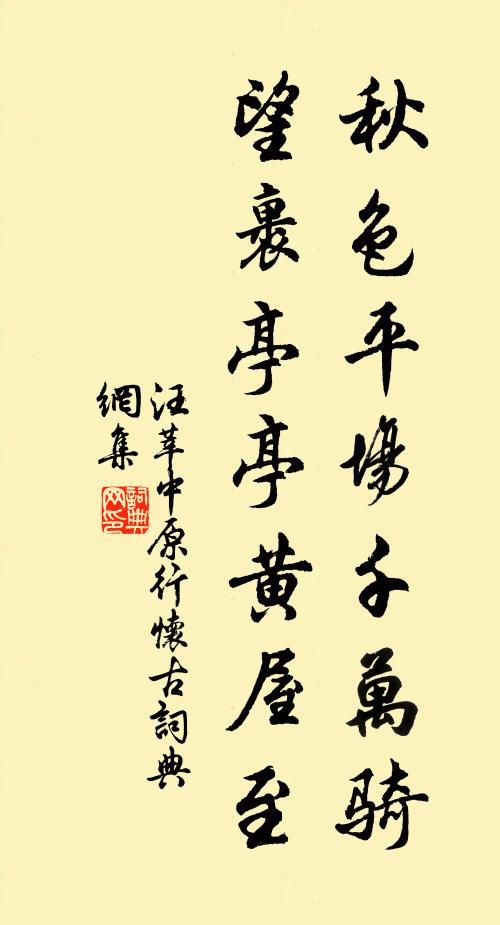 秋色平場千萬騎
望裏亭亭黃屋至
汪莘中原行懷古詞典
網集
詞典网印